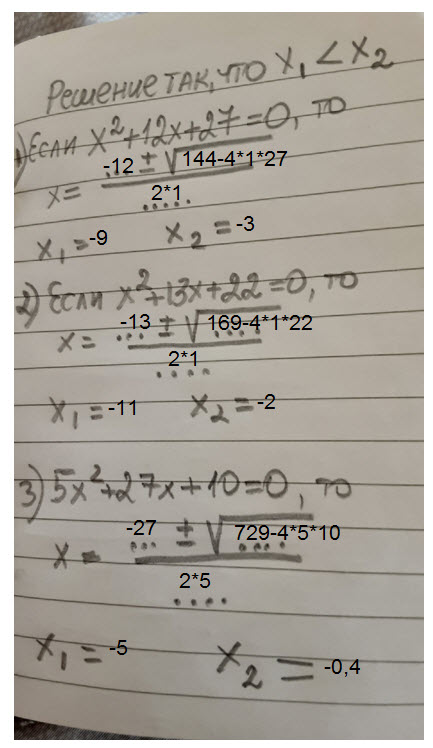 Решение так, что x₁ < x₂
1) Если x²+12x+27=0, то
x = (-12 ± √(144-4*1*27)) / (2*1)
x₁ = -9 x₂ = -3
2) Если x²+13x+22=0, то
x = (-13 ± √(169-4*1*22)) / (2*1)
x₁ = -11 x₂ = -2
3) 5x²+27x+10=0, то
x = (-27 ± √(729-4*5*10)) / (2*5)
x₁ = -5 x₂ = -0,4